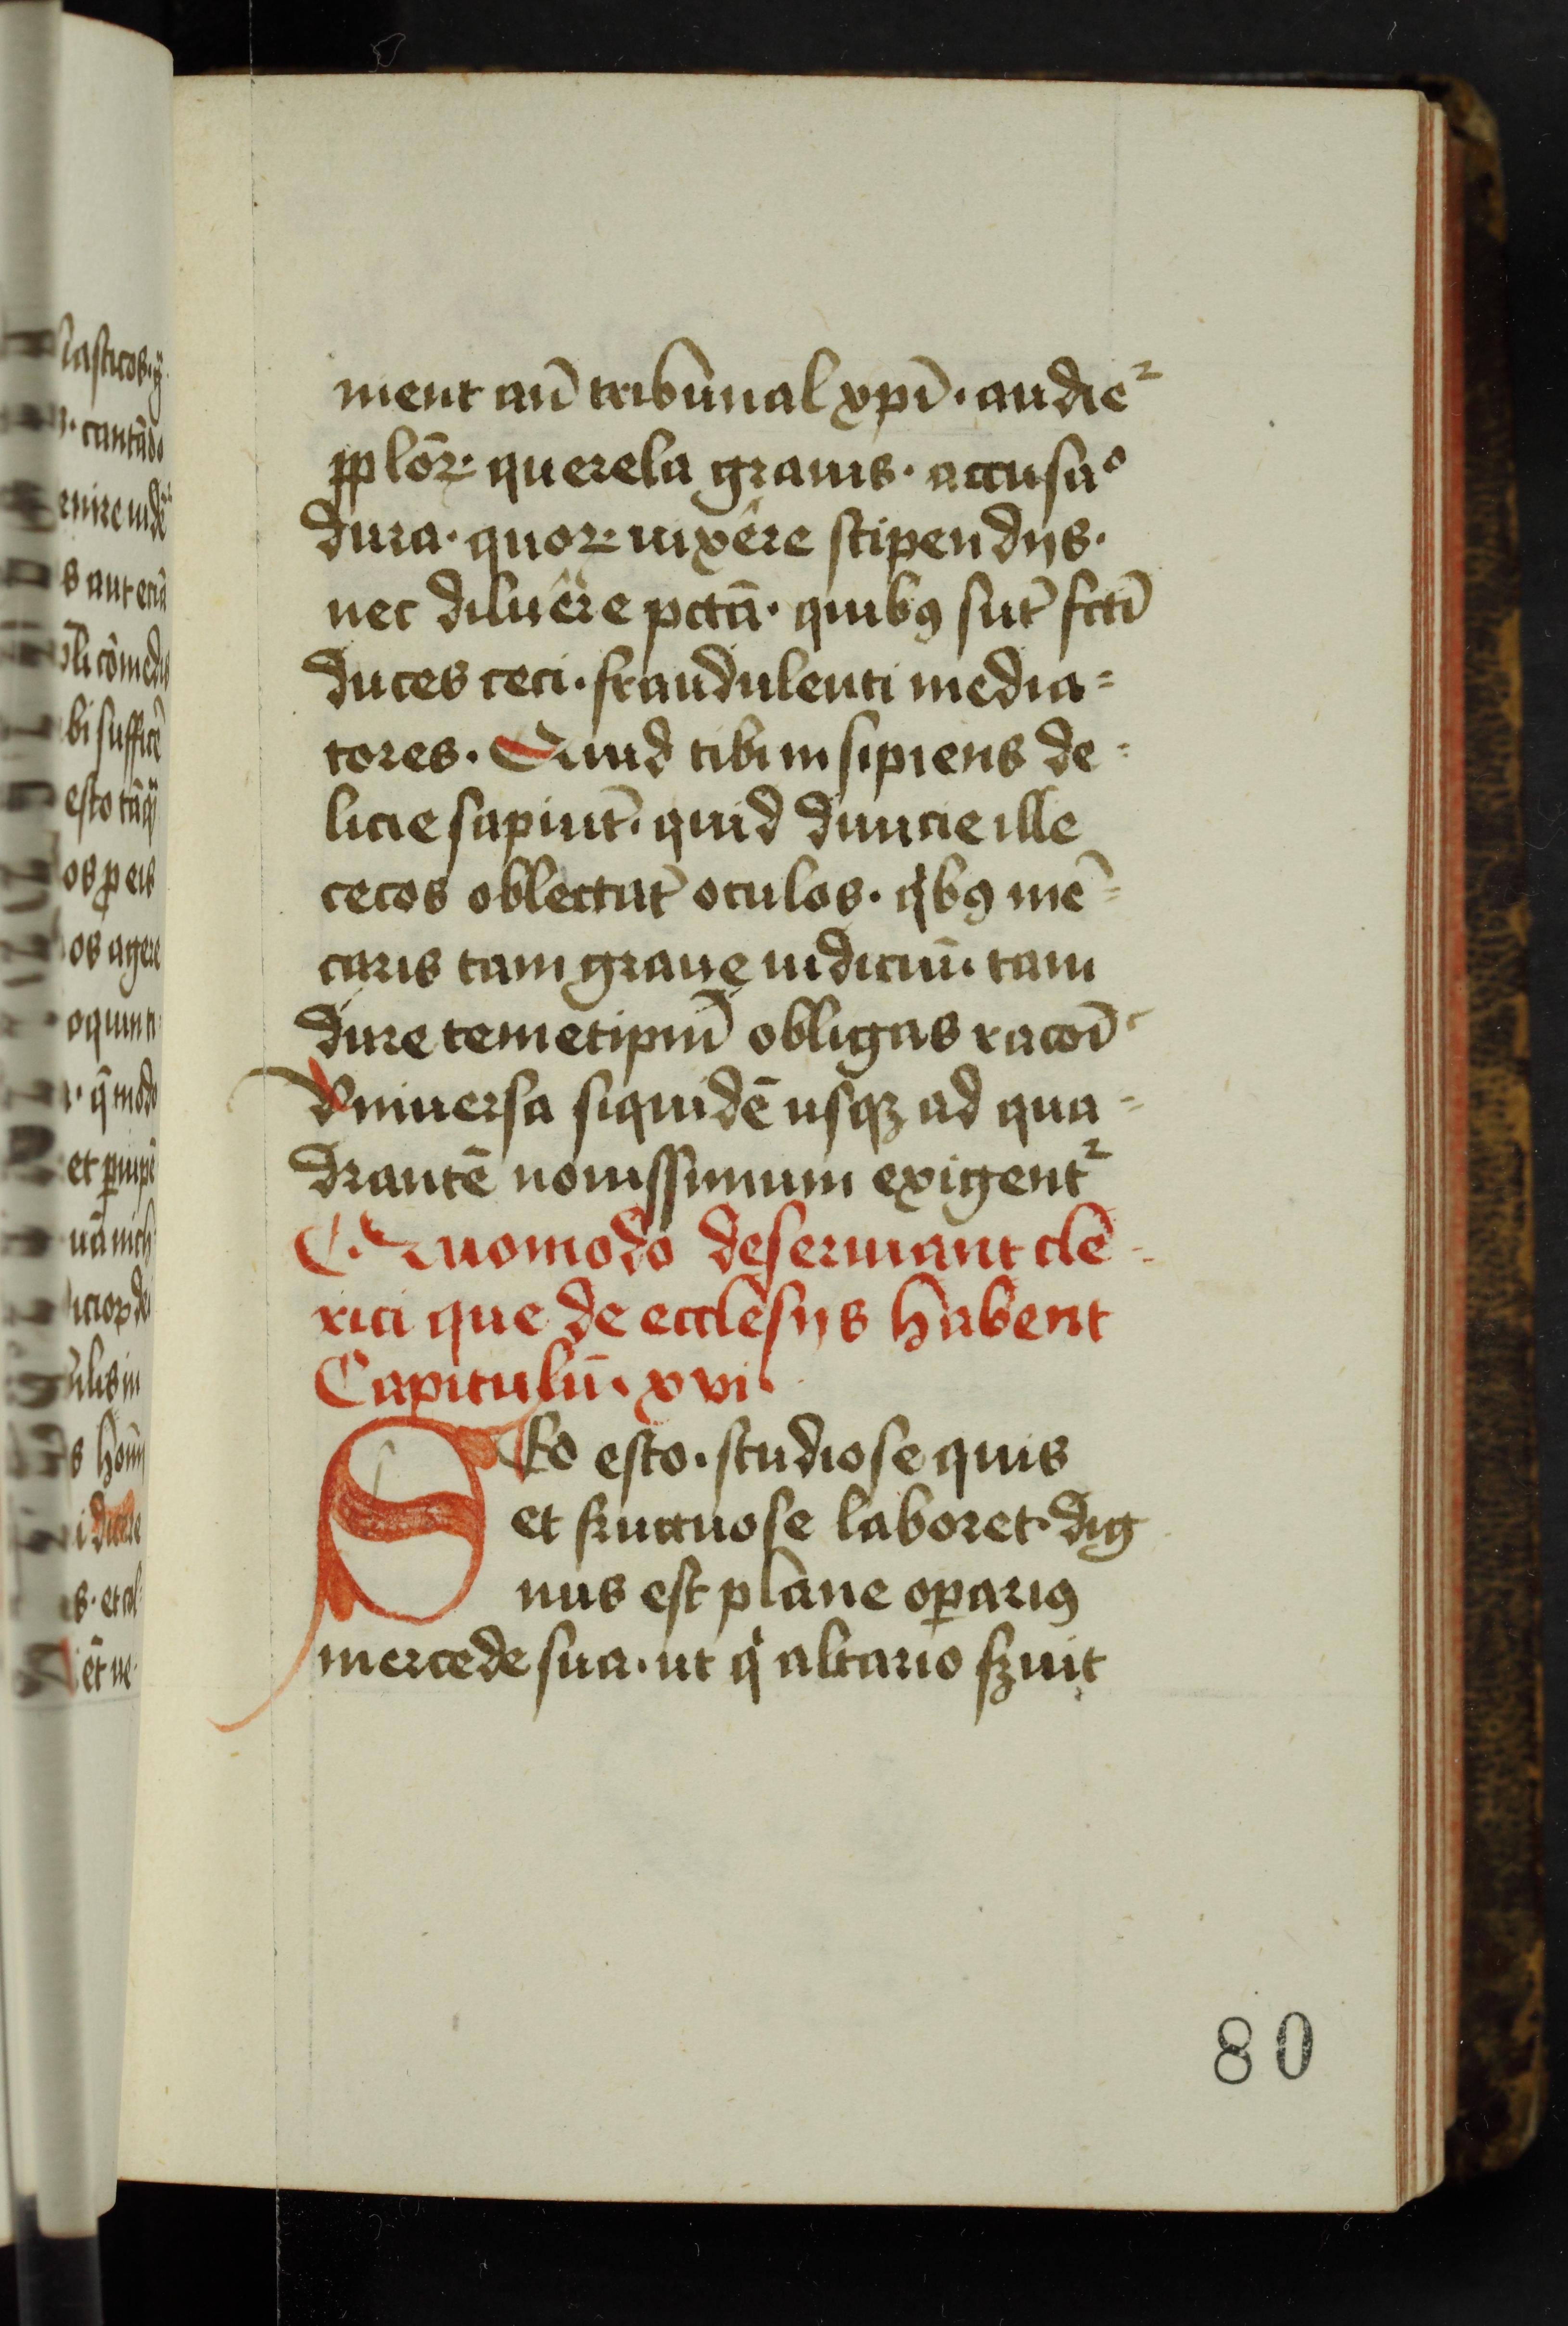 ment an̄ tribunal xp̄i · audiet²
pplōꝝ querela grauis · accusa°
dura · quoꝝ uixēre stipendijs ·
nec diluēre pctā · quibꝯ sūt fctī
duces ceci · fraudulenti media=
tores · Quid tibi insipiens de=
licie sapiūt · quid diuicie ille
cecos oblectāt oculos · qͥbꝯ mē=
caris tam graue iudiciū · tam
dire temetipm̄ obligas racōī
Vniuersa siquidē usqꝫ ad qua=
drantē nouissimum exigent²
Quomodo deseruiant cle=
rici que de ecclesijs habent
Capitulū · xvi ·
S Ed esto · studiose quis
et fructuose laboret · dig
nus est plane oꝑariꝯ
mercede sua · ut qͥ altario ſꝫuit
80